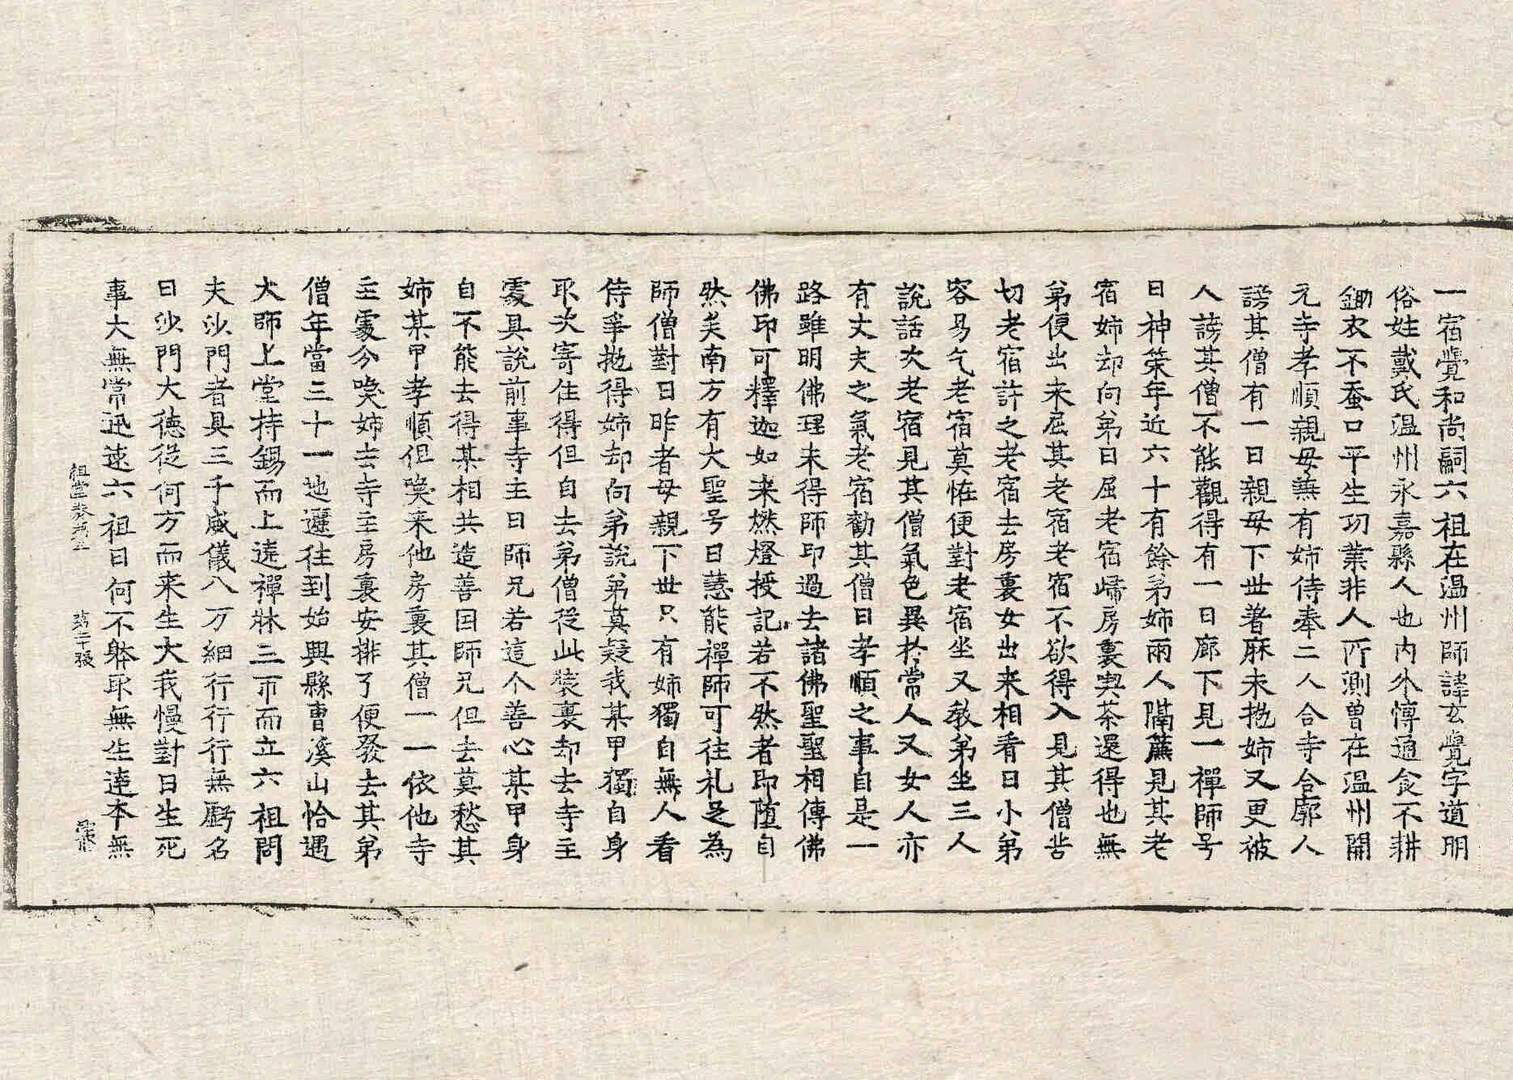 一宿覺和尚嗣六祖在温州師諱玄覺字道明
俗姓戴氏温州永嘉縣人也内外博通食不耕
鋤衣不蚕口平生功業非人所測曽在温州開
元寺孝順親母兼有姉侍奉二人合寺合廓人
謗其僧有一日親母下世著麻未抛姉又更被
人謗其僧不能觀得有一日廊下見一禪師号
曰神策年近六十有餘弟姉兩人隔薕見其老
宿姉却向弟曰屈老宿歸房裏喫茶還得也無
弟便出来屈其老宿老宿不欲得入見其僧苦
切老宿許之老宿去房裏女出来相看曰小弟
容易乞老宿莫恠便對老宿坐又教弟坐三人
說話次老宿見其僧氣色異於常人又女人亦
有丈夫之氣老宿勸其僧曰孝順之事自是一
路雖明佛理未得師印過去諸佛聖聖相傳佛
佛印可釋迦如来燃燈授記若不然者即墮自
然矣南方有大聖号曰慧能禪師可往礼足為
師僧對曰昨者母親下世只有姉獨自無人看
侍爭抛得姉却向弟說弟莫疑我某甲獨自身
取次寄住得但自去弟僧從此裝裹却去寺主
處具說前事寺主曰師兄若這个善心某甲身
自不能去得某相共造善因師兄但去莫愁其
姉某甲孝順但喚来他房裏其僧一一依他寺
主處分喚姉去寺主房裏安排了便發去其弟
僧年當三十一迤邐往到始興縣曹溪山恰遇
大師上堂持錫而上遶禪牀三帀而立六祖問
夫沙門者具三千威儀八万細行行行無虧名
曰沙門大德從何方而来生大我慢對曰生死
事大無常迅速六祖曰何不躰取無生達本無
祖堂卷第三 第二十張